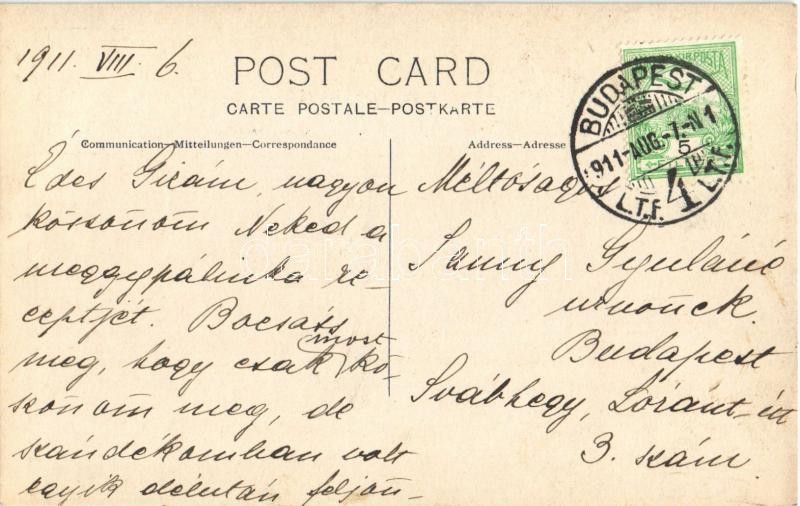 1911. VIII. 6.
POST CARD
CARTE POSTALE—POSTKARTE
Communication—Mitteilungen—Correspondance
Édes Gizám, nagyon
köszönöm Neked a
meggypálinka re-
ceptjét. Bocsáss
meg, hogy csak most kö-
szönöm meg, de
szándékomban volt
egyik délután feljön-
Address—Adresse
Méltóságos
Gyuláné
úrnőnek.
Budapest
Svábhegy, Lóránt-út
3. szám.
BUDAPEST
911-AUG.-7.-N1
5
4
L.T.f.
L.T.f.
darabanth